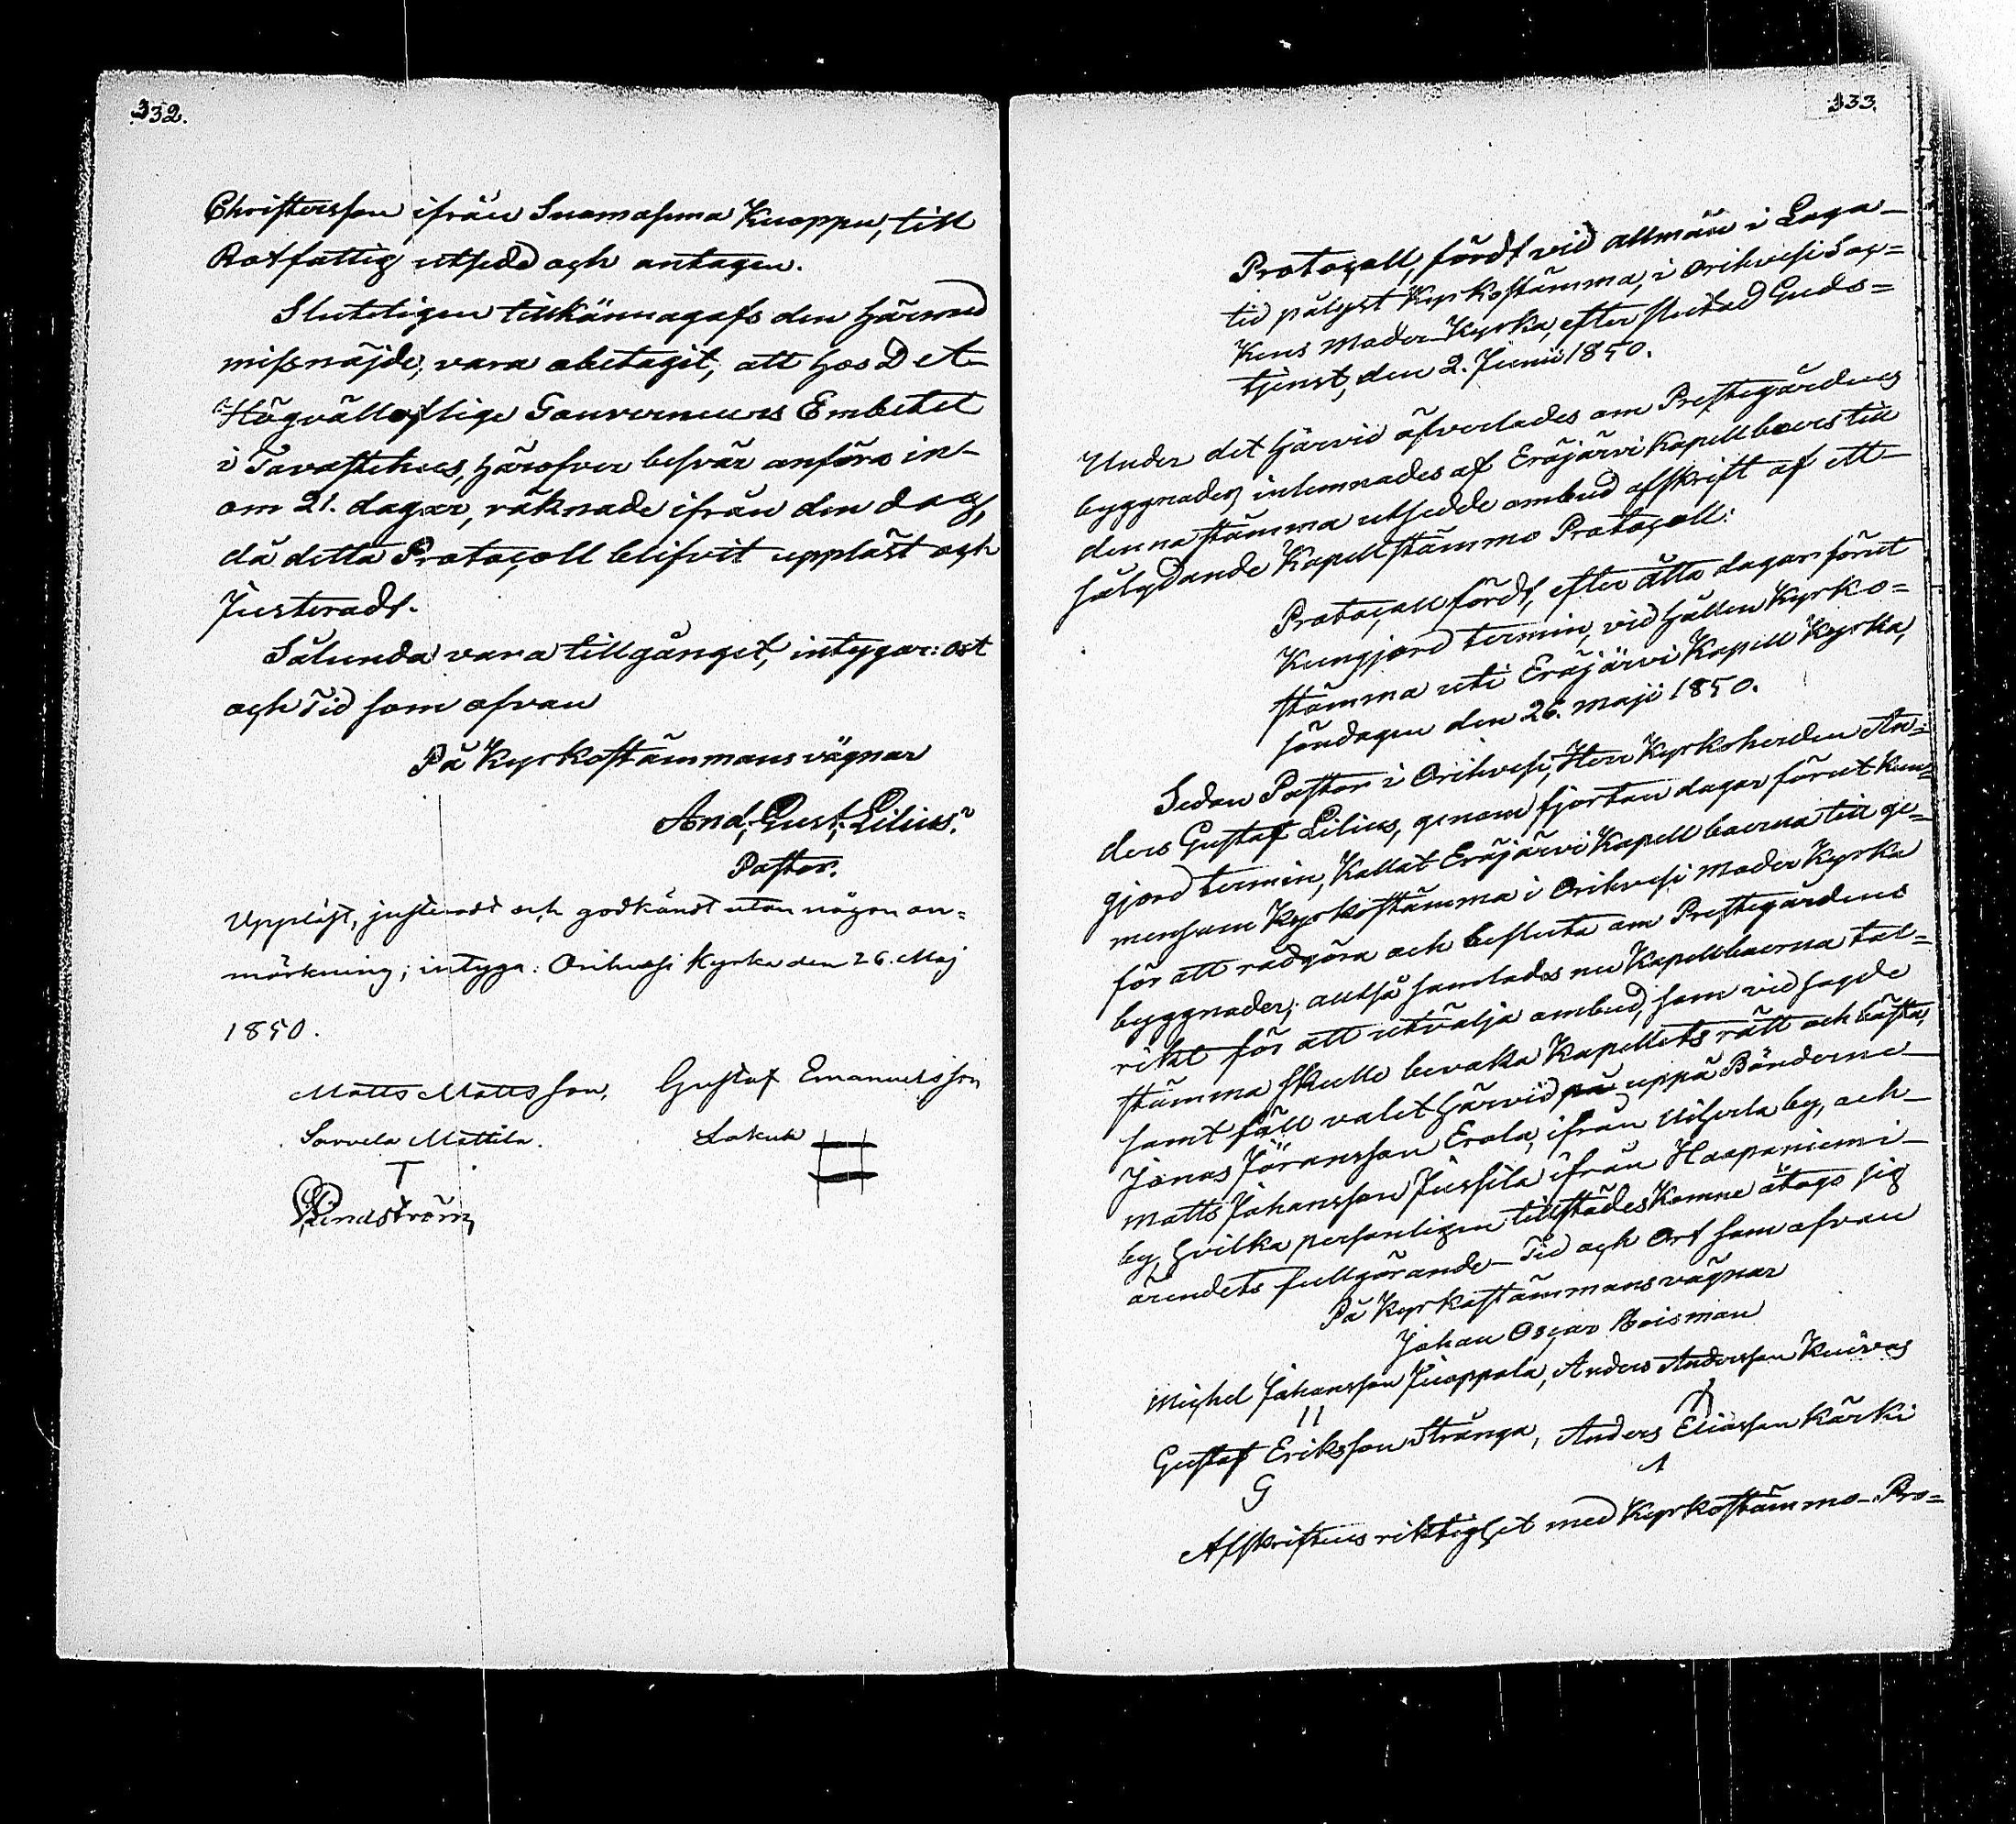 332.
Christersson ifrån Suomasma Kuoppu, till
Rotfattig utsedd och antagen.
Sluteligen tillkännagafs den härmed
missnöjde, vara obetagit, att hos Det
Högvälloflige Gouverneurs Embetet
i Tavastehus, häröfver besvär anföra in-
om 21. dagar, räknade ifrån den dag,
då detta Protocoll blifvit uppläst och
Justeradt.
Sålunda vara tillgånget, intygar: ort
och Tid som ofvan
På Kyrkostämmans vägnar
And. Gust. Lilius.
Pastor.
Uppläst, justeradt och godkändt utan någon an=
märkning; intyga: Orihvesi Kyrka den 26. Maj
1850.
Matts Mattsson, Gustaf Emanuelsson
Sorvela Mattila. Lakuh
T
Lindström
333.
Protocoll, fördt vid allmän i Laga
tid pålyst Kyrkostämma, i Orihvesi Soc=
kens Moder Kyrka, efter slutad Guds=
tjenst, den 2. Junii 1850.
Under det härvid öfverlades om Prestegårdens
byggnader, inlemnades af Eräjärvi Kapellboers till
denna stämma utsedde ombud afskrift af ett
sålydande Kapellstämmo Protocoll:
Protocoll fördt, efter åtta dagar förut
Kungjord termin, vid hållen Kyrko=
stämma uti Eräjärvi Kapell Kyrka,
söndagen den 26. Maji 1850.
Sedan Pastor i Orihvesi, Herr Kyrkoherden An=
ders Gustaf Lilius, genom fjorton dagar förut kun=
gjord termin, Kallat Eräjärvi Kapellboerna till ge=
mensam Kyrkostämma i Orihvesi Moder Kyrka
för att rådgöra och besluta om Prestegårdens
byggnader; alltså samlades nu Kapellboerna tal=
rikt för att utvälja ombud, som vid sagde
stämma skulle bevaka Kapellets rätt och bästa,
samt föll valet härvid på uppå Bönderne
Jonas Jöransson Erola, ifrån Uiherla by, och
Matts Johansson Jussila ifrån Haapaniemi
by, hvilka personligen tillstädes Komne åtogo sig
ärendets fullgörande. Tid och Ort som ofvan
På Kyrkostämmans vägnar
Johan Oscar Roisman
Michel Johansson Juoppala, Anders Andersson Kuivas
11
Gustaf Eriksson Stränga, Anders Eliasson Kärki
G
Afskriftens riktighet med Kyrkostämmo-Pro=